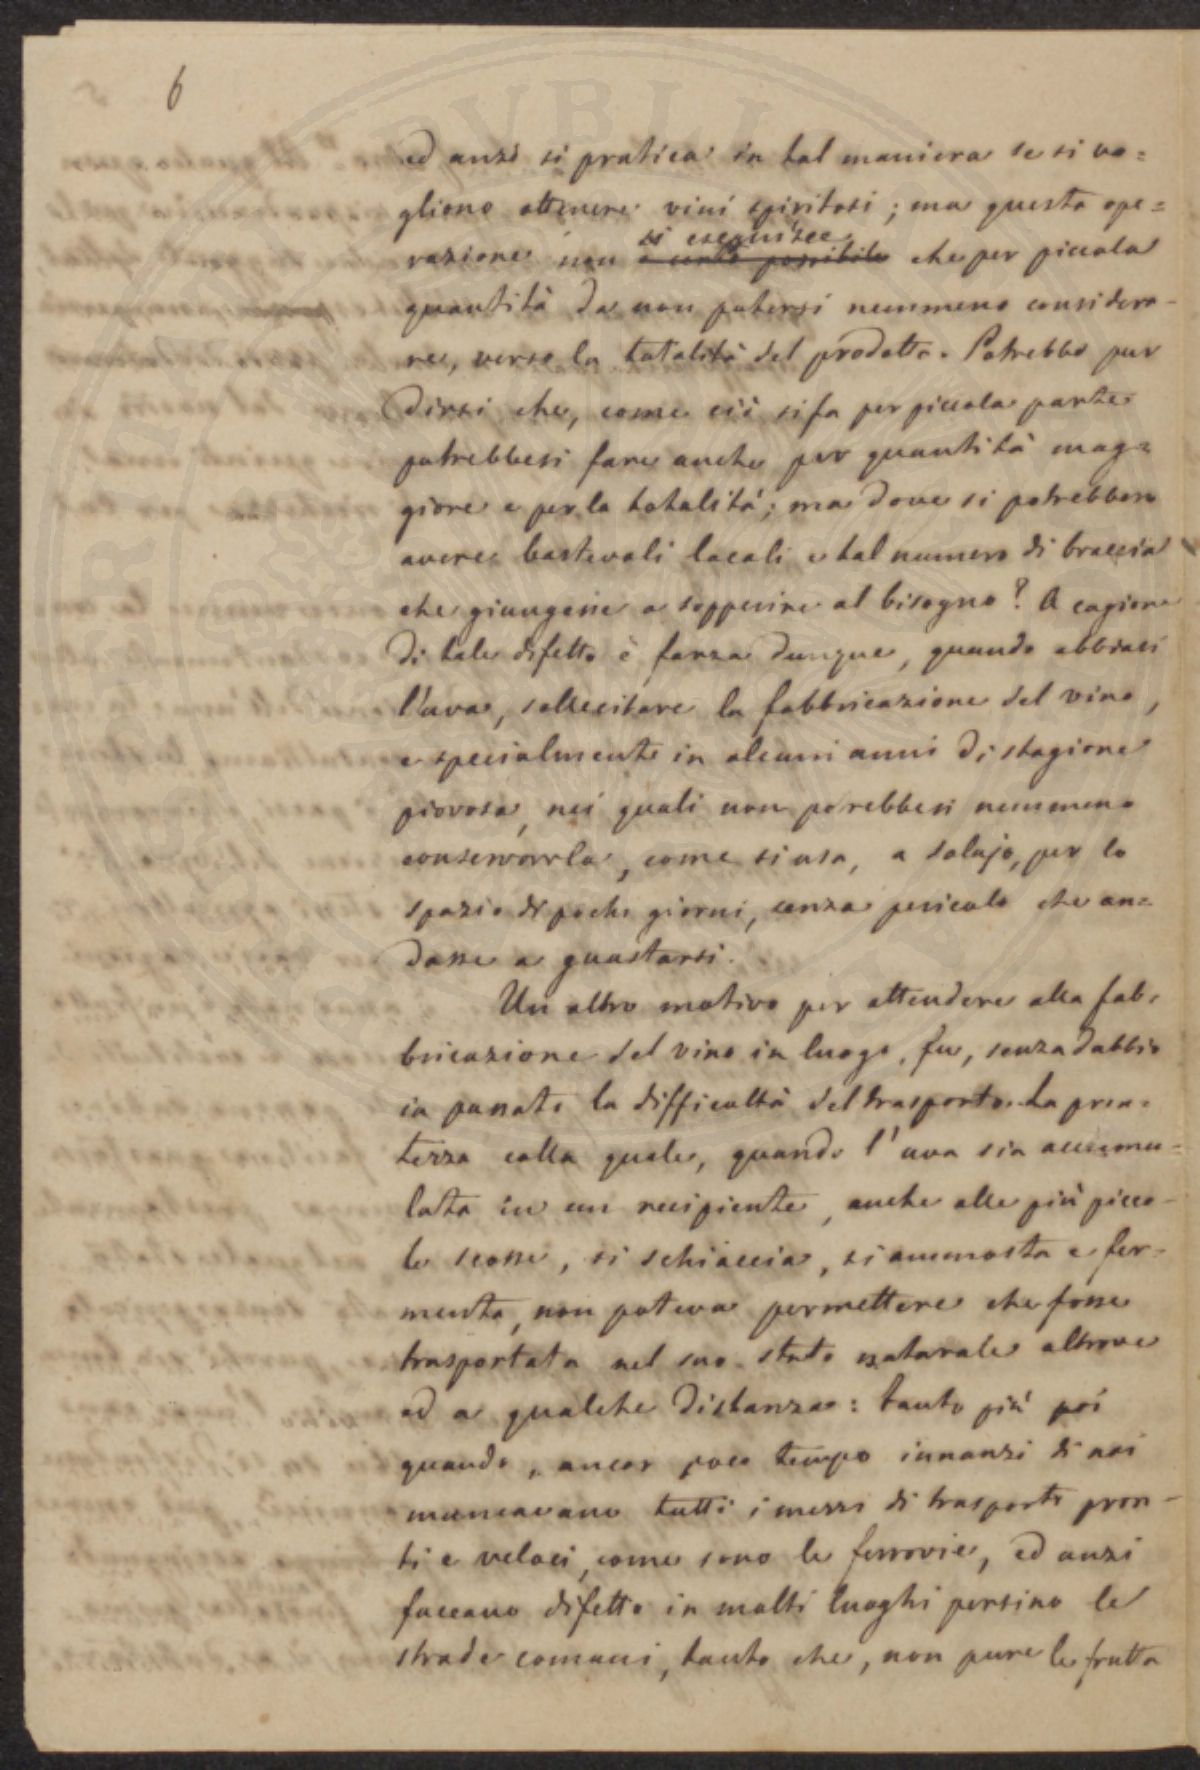 6
ed anzi si pratica in tal maniera se si vo=
gliono ottenere vini spiritosi; ma questa ope=
si eseguisce
razione non è certo possibile che per piccola
quantità da non potersi nemmeno considera-
re, verso la totalità del prodotto. Potrebbe pur
dirsi che, come ciò si fa per piccola parte
potrebbesi fare anche per quantità mag=
giore e per la totalità; ma dove si potrebbero
avere bastevoli locali e tal numero di braccia
che giungesse a sopperire al bisogno? A cagione
di tale difetto è forza dunque, quando abbiasi
l'uva, sollecitare la fabbricazione del vino,
e specialmente in alcuni anni di stagione
piovosa, nei quali non potrebbesi nemmeno
conservarla, come si usa, a solajo, per lo
spazio di pochi giorni, senza pericolo che an=
dasse a guastarsi.
Un altro motivo per attendere alla fab-
bricazione del vino in luogo, fu, senza dubbio
in passato la difficoltà del trasporto. La pron-
tezza colla quale, quando l'uva sia accumu-
lata in un recipiente, anche alle più picco-
le scosse, si schiaccia, si ammosta e fer-
menta, non poteva permettere che fosse
trasportata nel suo stato naturale altrove
ed a qualche distanza: tanto più poi
quando, ancor poco tempo innanzi di noi
mancavano tutti i mezzi di trasporto pron-
ti e veloci, come sono le ferrovie, ed anzi
faceano difetto in molti luoghi persino le
strade comuni, tanto che, non pure le frutta